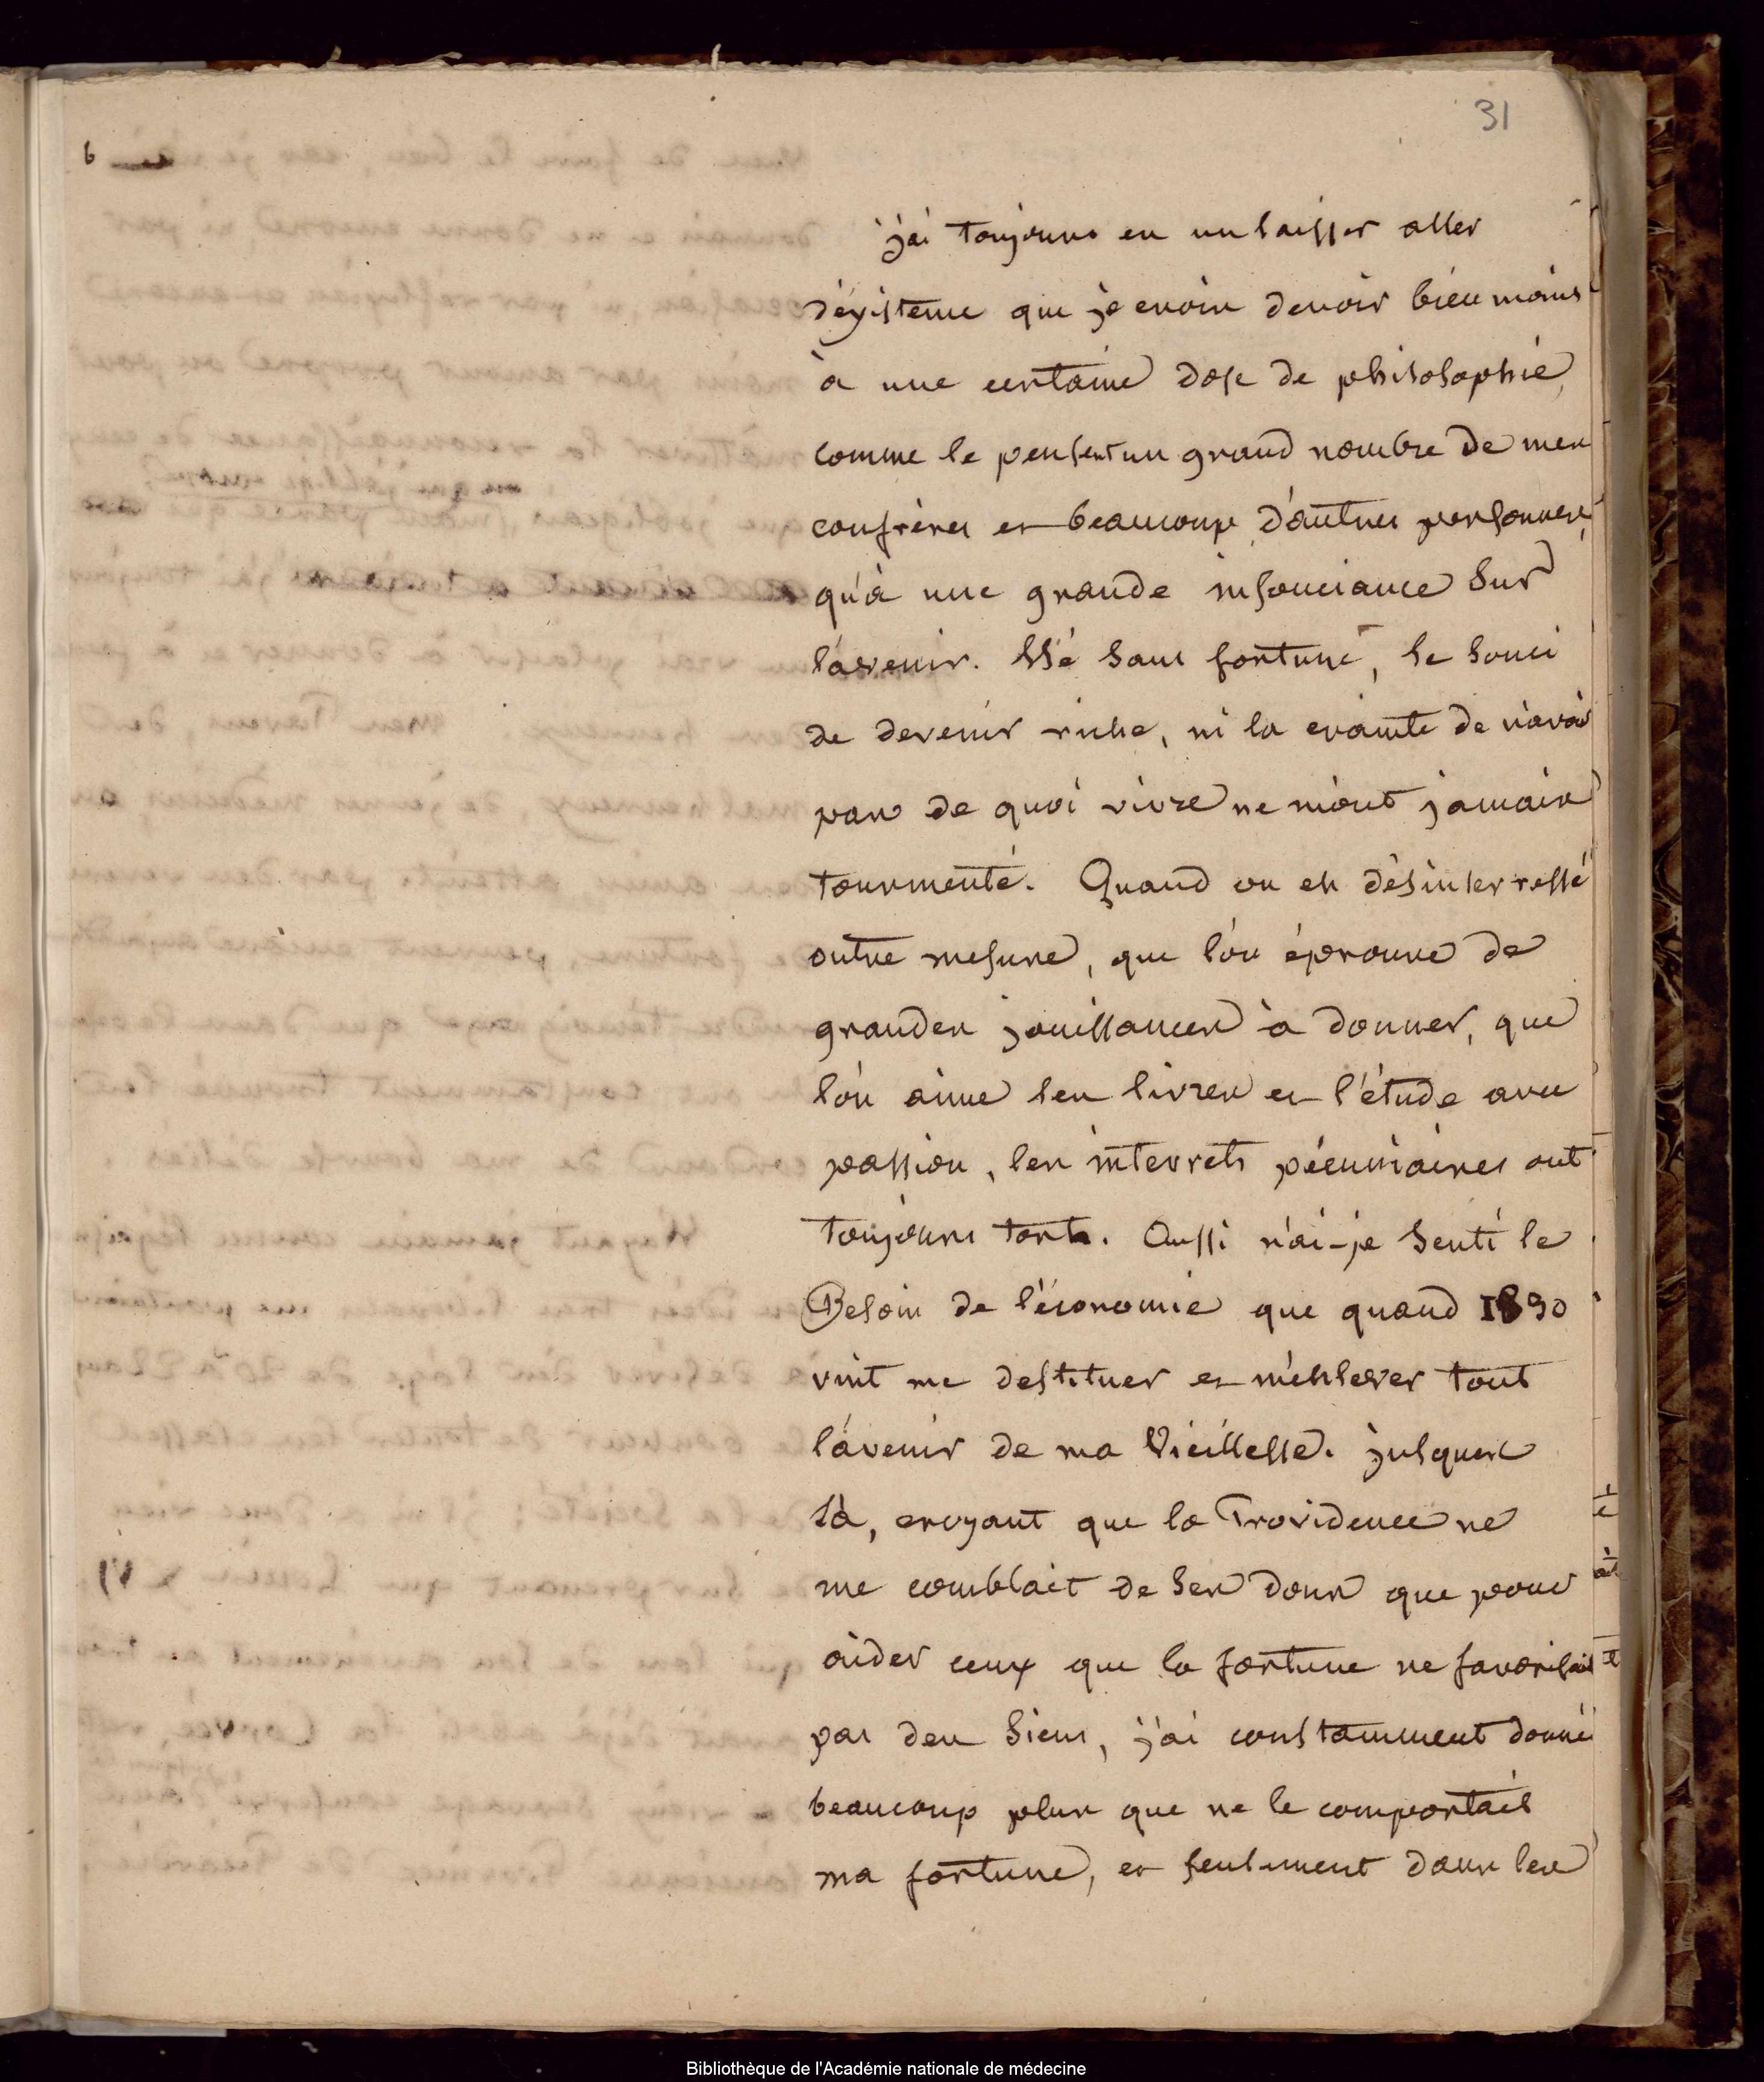 31
j'ai toujours eu un laisser aller
d'éxistence que je crois devoir bien moins
à une certaine dose de philosophie,
comme le pensent un grand nombre de mes
confrères et beaucoup d'autres personnes,
qu'à une grande insouciance sur
l'avenir. Né sans fortune, le souci
de devenir riche, ni la crainte de n'avoir
pas de quoi vivre ne m'ont jamais
tourmenté. Quand on est désinterressé
outre mesure, que l'on éprouve de
grandes jouissances à donner, que
l'on aime les livres et l'étude avec
passion, les interrets pécuniaires ont
toujours torts. Aussi n'ai-je senti le
Besoin de l'économie que quand 1830
vint me destituer et m'enlever tout
l'avenir de ma Vieillesse. jusques
là, croyant que la Providence ne
me comblait de ses dons que pour
aider ceux que la fortune ne favorisait
pas des siens, j'ai constamment donné
beaucoup plus que ne le comportait
ma fortune, et seulement dans les
Bibliothèque de l'Académie nationale de médecine